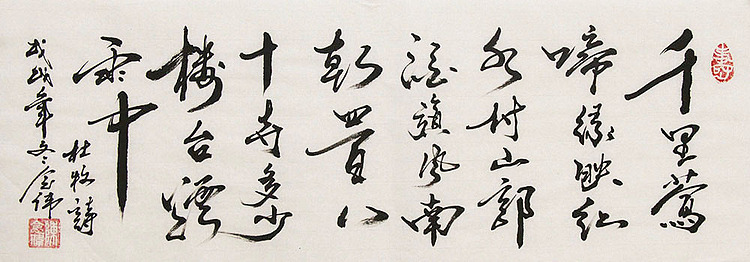 千里莺
啼緑映红
水村山郭
酒旗风南
朝四百八
十寺多少
楼台煙
雨中
杜牧詩
戊戌年冬金伟